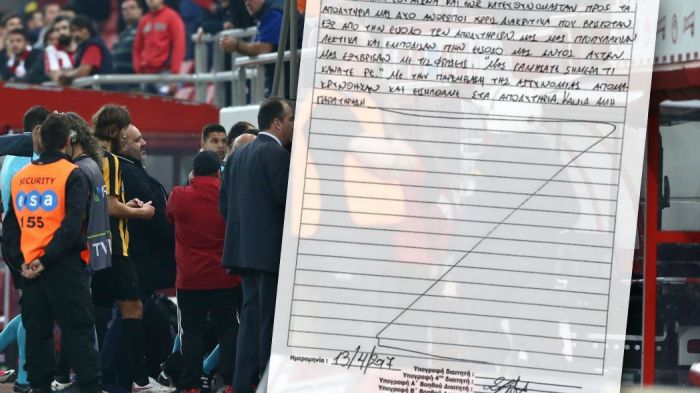 ΚΑΙ ΕΝΩ ΚΑΤΕΥΘΥΝΟΜΑΣΤΑΝ ΠΡΟΣ ΤΑ
ΑΠΟΔΥΤΗΡΙΑ ΜΑΣ ΔΥΟ ΑΝΘΡΩΠΟΙ ΧΩΡΙΣ ΔΙΑΚΡΙΤΙΚΑ ΠΟΥ ΒΡΙΣΚΟΤΑΝ
ΕΞΩ ΑΠΟ ΤΗΝ ΕΙΣΟΔΟ ΤΩΝ ΑΠΟΔΥΤΗΡΙΩΝ ΜΑΣ ΜΑΣ ΠΡΟΠΥΛΑΚΙΣΑΝ
ΛΕΚΤΙΚΑ ΚΑΙ ΕΜΠΟΔΙΣΑΝ ΤΗΝ ΕΙΣΟΔΟ ΜΑΣ ΕΝΤΟΣ ΑΥΤΩΝ
ΜΑΣ ΕΞΥΒΡΙΣΑΝ ΜΕ ΤΙΣ ΦΡΑΣΕΙΣ: "ΜΑΣ ΓΑΜΗΣΑΤΕ ΣΗΜΕΡΑ ΤΙ
ΚΑΝΑΤΕ ΡΕ." ΜΕ ΤΗΝ ΠΑΡΕΜΒΑΣΗ ΤΗΣ ΑΣΤΥΝΟΜΙΑΣ ΑΠΟΜΑ-
ΚΡΥΝΘΗΚΑΝ ΚΑΙ ΕΙΣΗΛΘΑΜΕ ΣΤΑ ΑΠΟΔΥΤΗΡΙΑ ΚΑΜΙΑ ΑΛΛΗ
ΠΑΡΑΤΗΡΗΣΗ
SECURITY
esa
155
TV
Ημερομηνία : 13/4/2017
Υπογραφή διαιτητή :
Υπογραφή 4ου διαιτητή :
Υπογραφή Α΄ Βοηθού Διαιτητή :
Υπογραφή Β΄ Βοηθού